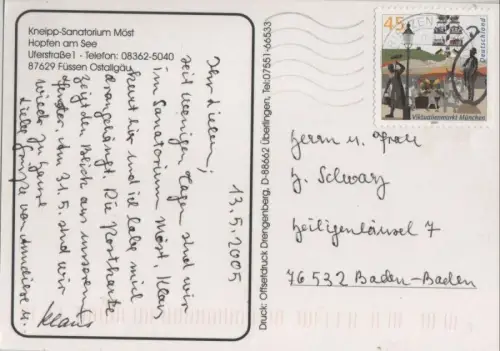 Kneipp-Sanatorium Möst
Hopfen am See
Uferstraße1 · Telefon: 08362-5040
87629 Füssen Ostallgäu
13.5.2005
Ihr Lieben,
seit wenigen Tagen sind wir
im Sanatorium Möst, Klaus
kurt hier und ich habe mich
drangehängt. Die Postkarte
zeigt den Blick aus unserem
Fenster. Am 31.5. sind wir
wieder zu Hause
Liebe Grüße von Anneliese u.
Klaus
Druck: Offsetdruck Drengenberg, D-88662 Überlingen, Tel:07551-66533
45
Deutschland
Viktualienmarkt München
Herrn u. Frau
H. Schwarz
Heiligenhäusel 7
76532 Baden-Baden